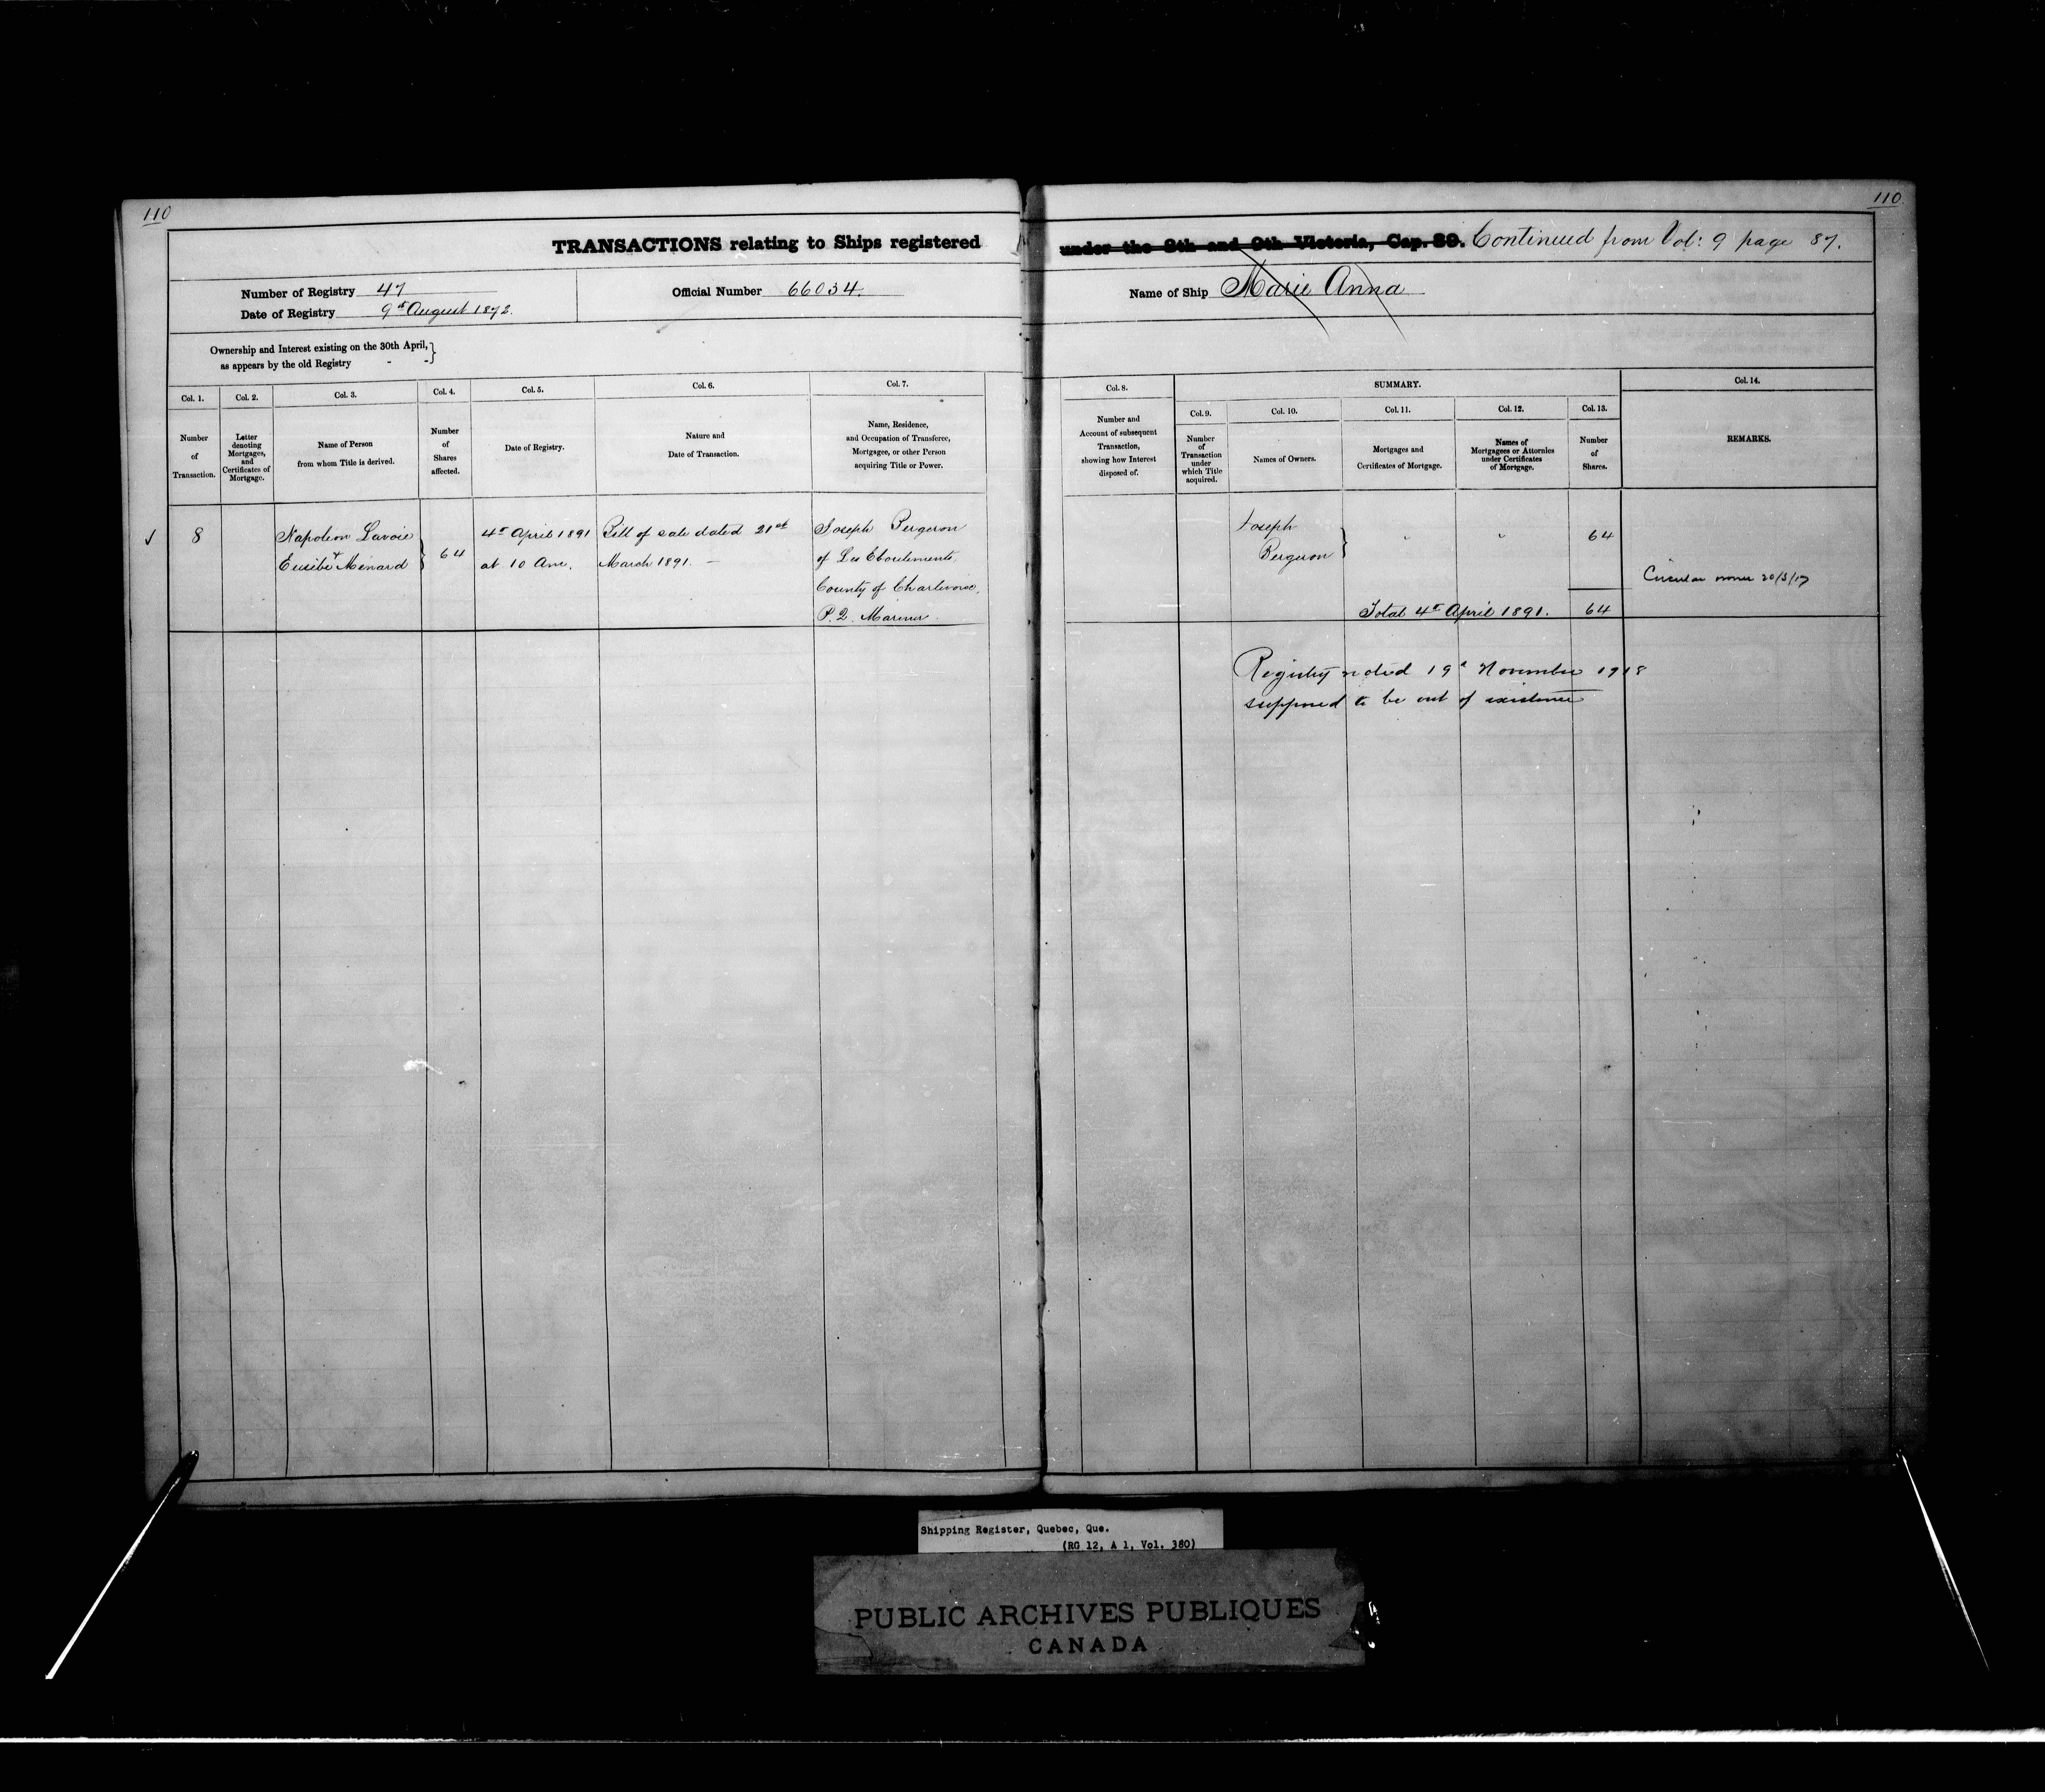 110
110
TRANSACTIONS relating to Ships registered under the 8th and 9th Victoria, Cap. 89. Continued from Vol: 9 page 87.
Number of Registry 47
Date of Registry 9th August 1872.
Official Number 66034.
Name of Ship Marie Anna
Ownership and Interest existing on the 30th April,
as appears by the old Registry - -
Col. 1.
Number
of
Transaction.
Col. 2.
Letter
denoting
Mortgages,
and
Certificates of
Mortgage.
Col. 3.
Name of Person
from whom Title is derived.
Col. 4.
Number
of
Shares
affected.
Col. 5.
Date of Registry.
Col. 6.
Nature and
Date of Transaction.
Col. 7.
Name, Residence,
and Occupation of Transferee,
Mortgagee, or other Person
acquiring Title or Power.
Col. 8.
Number and
Account of subsequent
Transaction,
showing how Interest
disposed of.
SUMMARY.
Col. 9.
Number
of
Transaction
under
which Title
acquired.
Col. 10.
Names of Owners.
Col. 11.
Mortgages and
Certificates of Mortgage.
Col. 12.
Names of
Mortgagees or Attornies
under Certificates
of Mortgage.
Col. 13.
Number
of
Shares.
Col. 14.
REMARKS.
8
Napoleon Lavoie
+
Eusibe Menard
64
4th April 1891
at 10 Am.
Bill of sale dated 21st
March 1891. —
Joseph Pergeron
of Les Eboulements,
County of Charlevoix,
P.Q. Mariner
Joseph
Bergeron
" "
64
Total 4th April 1891. 64
Circular owner 20/3/17
Registry noted 19th November 1918
supposed to be out of existence
Shipping Register, Quebec, Que.
(RG 12, A 1, Vol. 380)
PUBLIC ARCHIVES PUBLIQUES
CANADA